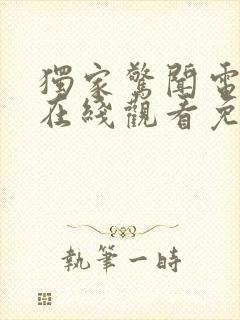 獨家驚聞電
在綫觀看免
執筆一時